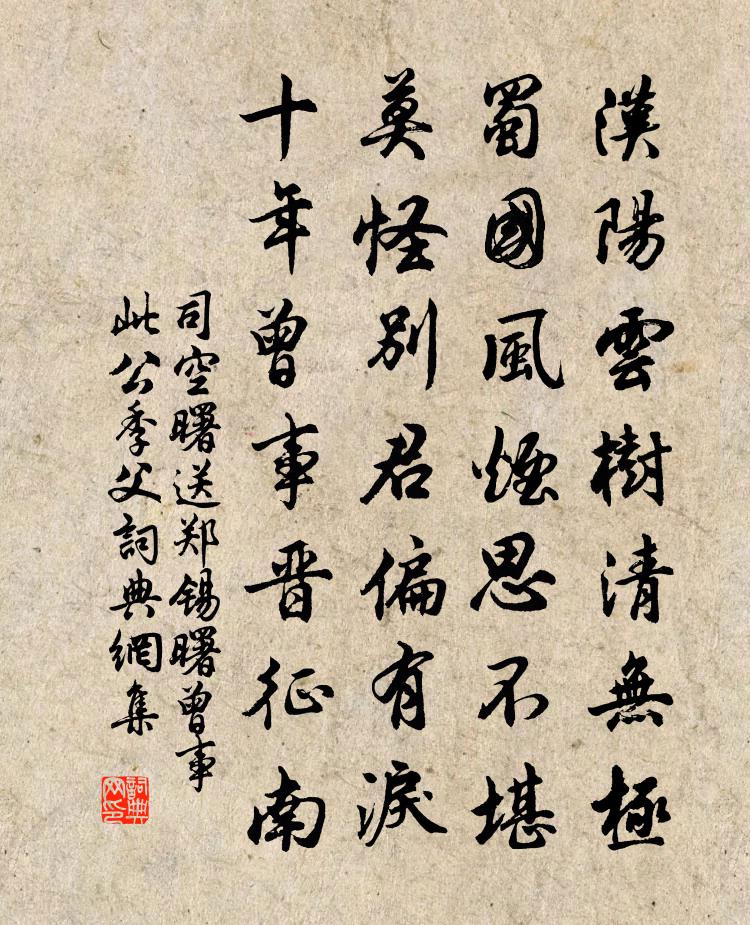 漢陽雲樹清無極
蜀國風煙思不堪
莫怪別君偏有淚
十年曾事晋征南
司空曙送郑锡曙曾事
此公季父詞典網集
詞典
网印